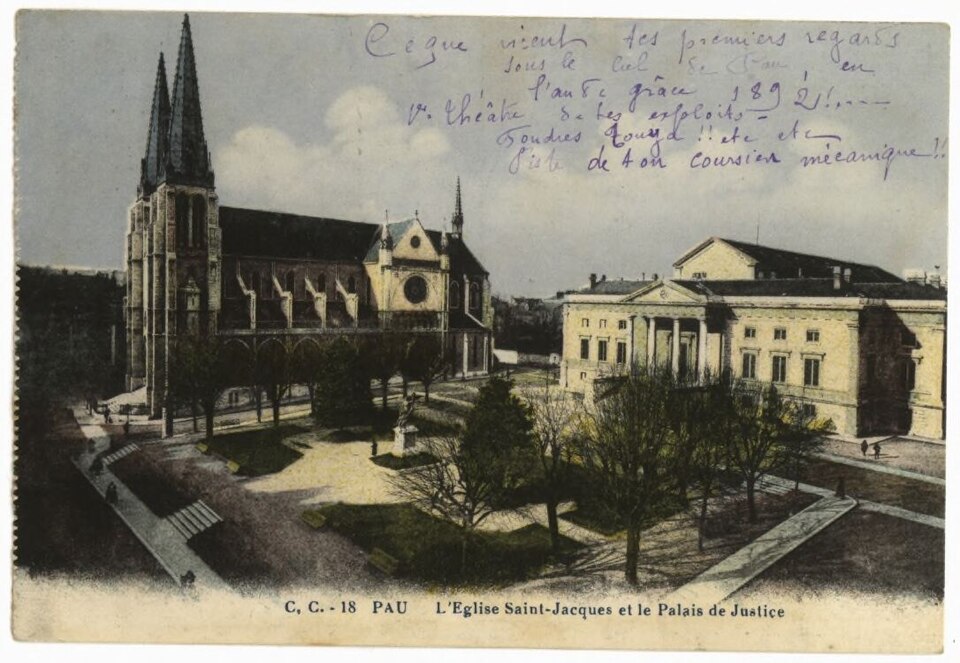 Ce que virent tes premiers regards
sous le ciel de Pau, en
l'an de grâce 1892!....
Vº théâtre de tes exploits -
Foudres !! etc etc
Piste de ton coursier mécanique!!
C, C. - 18 PAU L'Eglise Saint-Jacques et le Palais de Justice